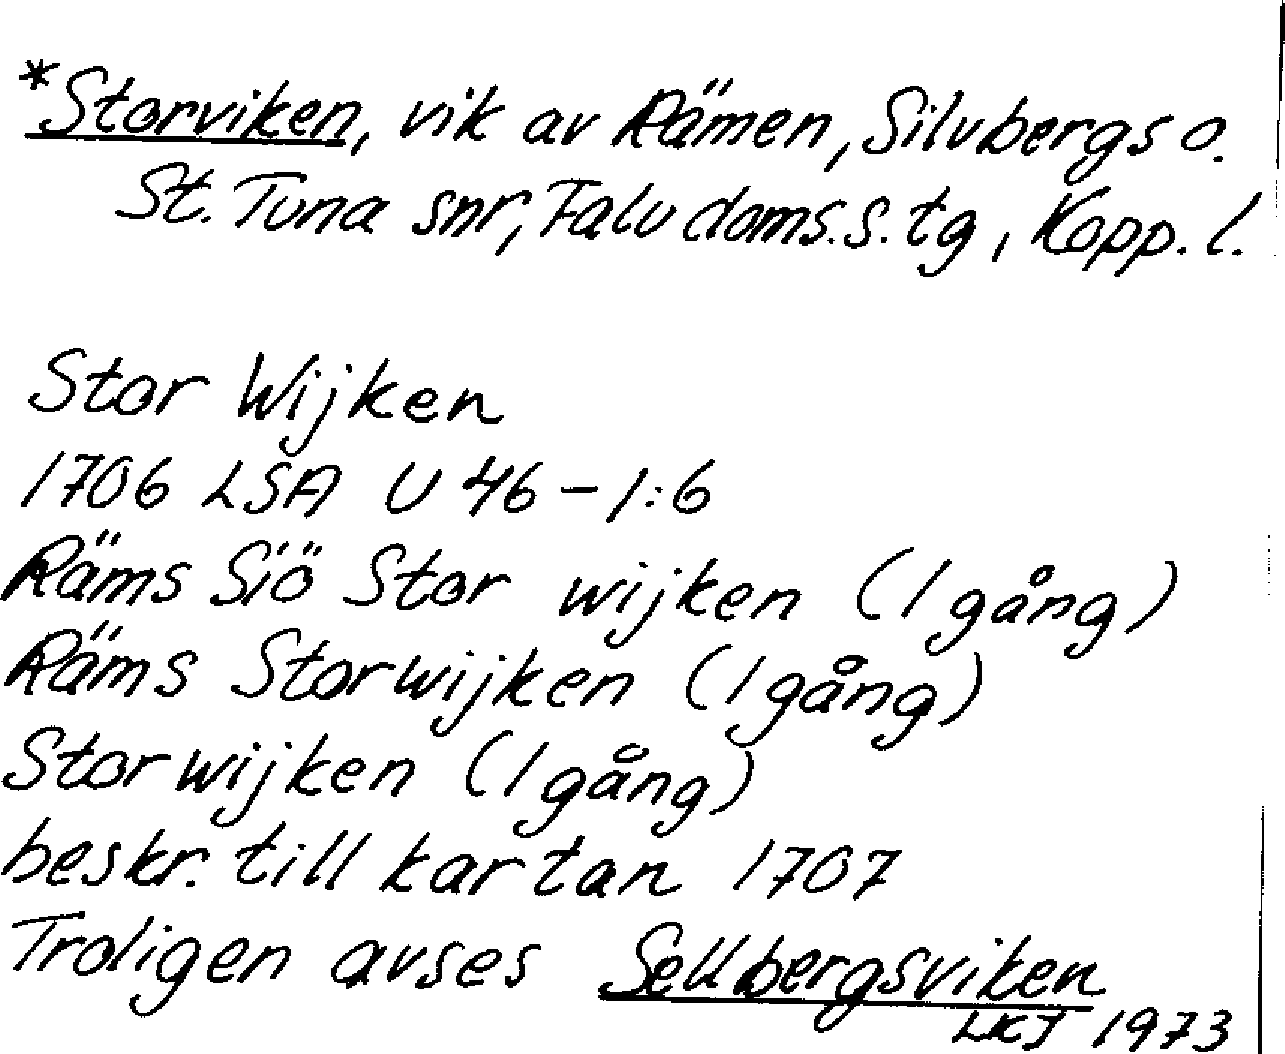 *Storviken, vik av Rämen, Silvbergs o.
St. Tuna snr, Falu doms.s. tg, Kopp. l.
Stor Wijken
1706 LSA U 46-1:6
Räms Siö Stor wijken (1 gång)
Räms Storwijken (1 gång)
Storwijken (1 gång)
beskr. till kartan 1707
Troligen avses Sellbergsviken
LKJ 1973